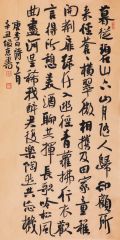 暮從碧山下山月隨人歸卻顧所
來徑蒼蒼橫翠微相攜及田家童稚
開荊扉綠竹入幽徑青蘿拂行衣歡
言得所憩美酒聊共揮長歌吟松風
曲盡河星稀我醉君復樂陶然共忘機
唐李白詩一首
辛丑